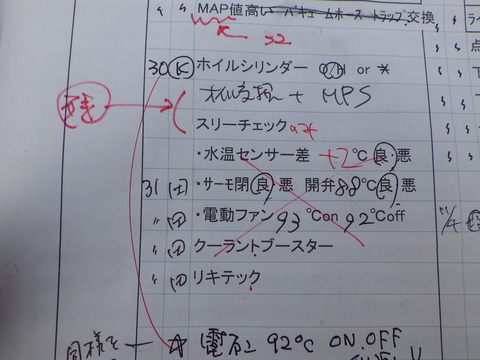 〃 〃 MAP値高い バキュームホース トラップ 交換
K 32
30 K ホイルシリンダー O/H or
残 + MPS
スリーチェック
・水温センサー差 +2℃ 良・悪
31 土 ・サーモ閉 良・悪 開弁88℃ 良・悪
〃 土 ・電動ファン 93℃on 92℃off
〃 土 クーラントブースター
〃 土 リキテック
同様を 92℃ ON.OFF